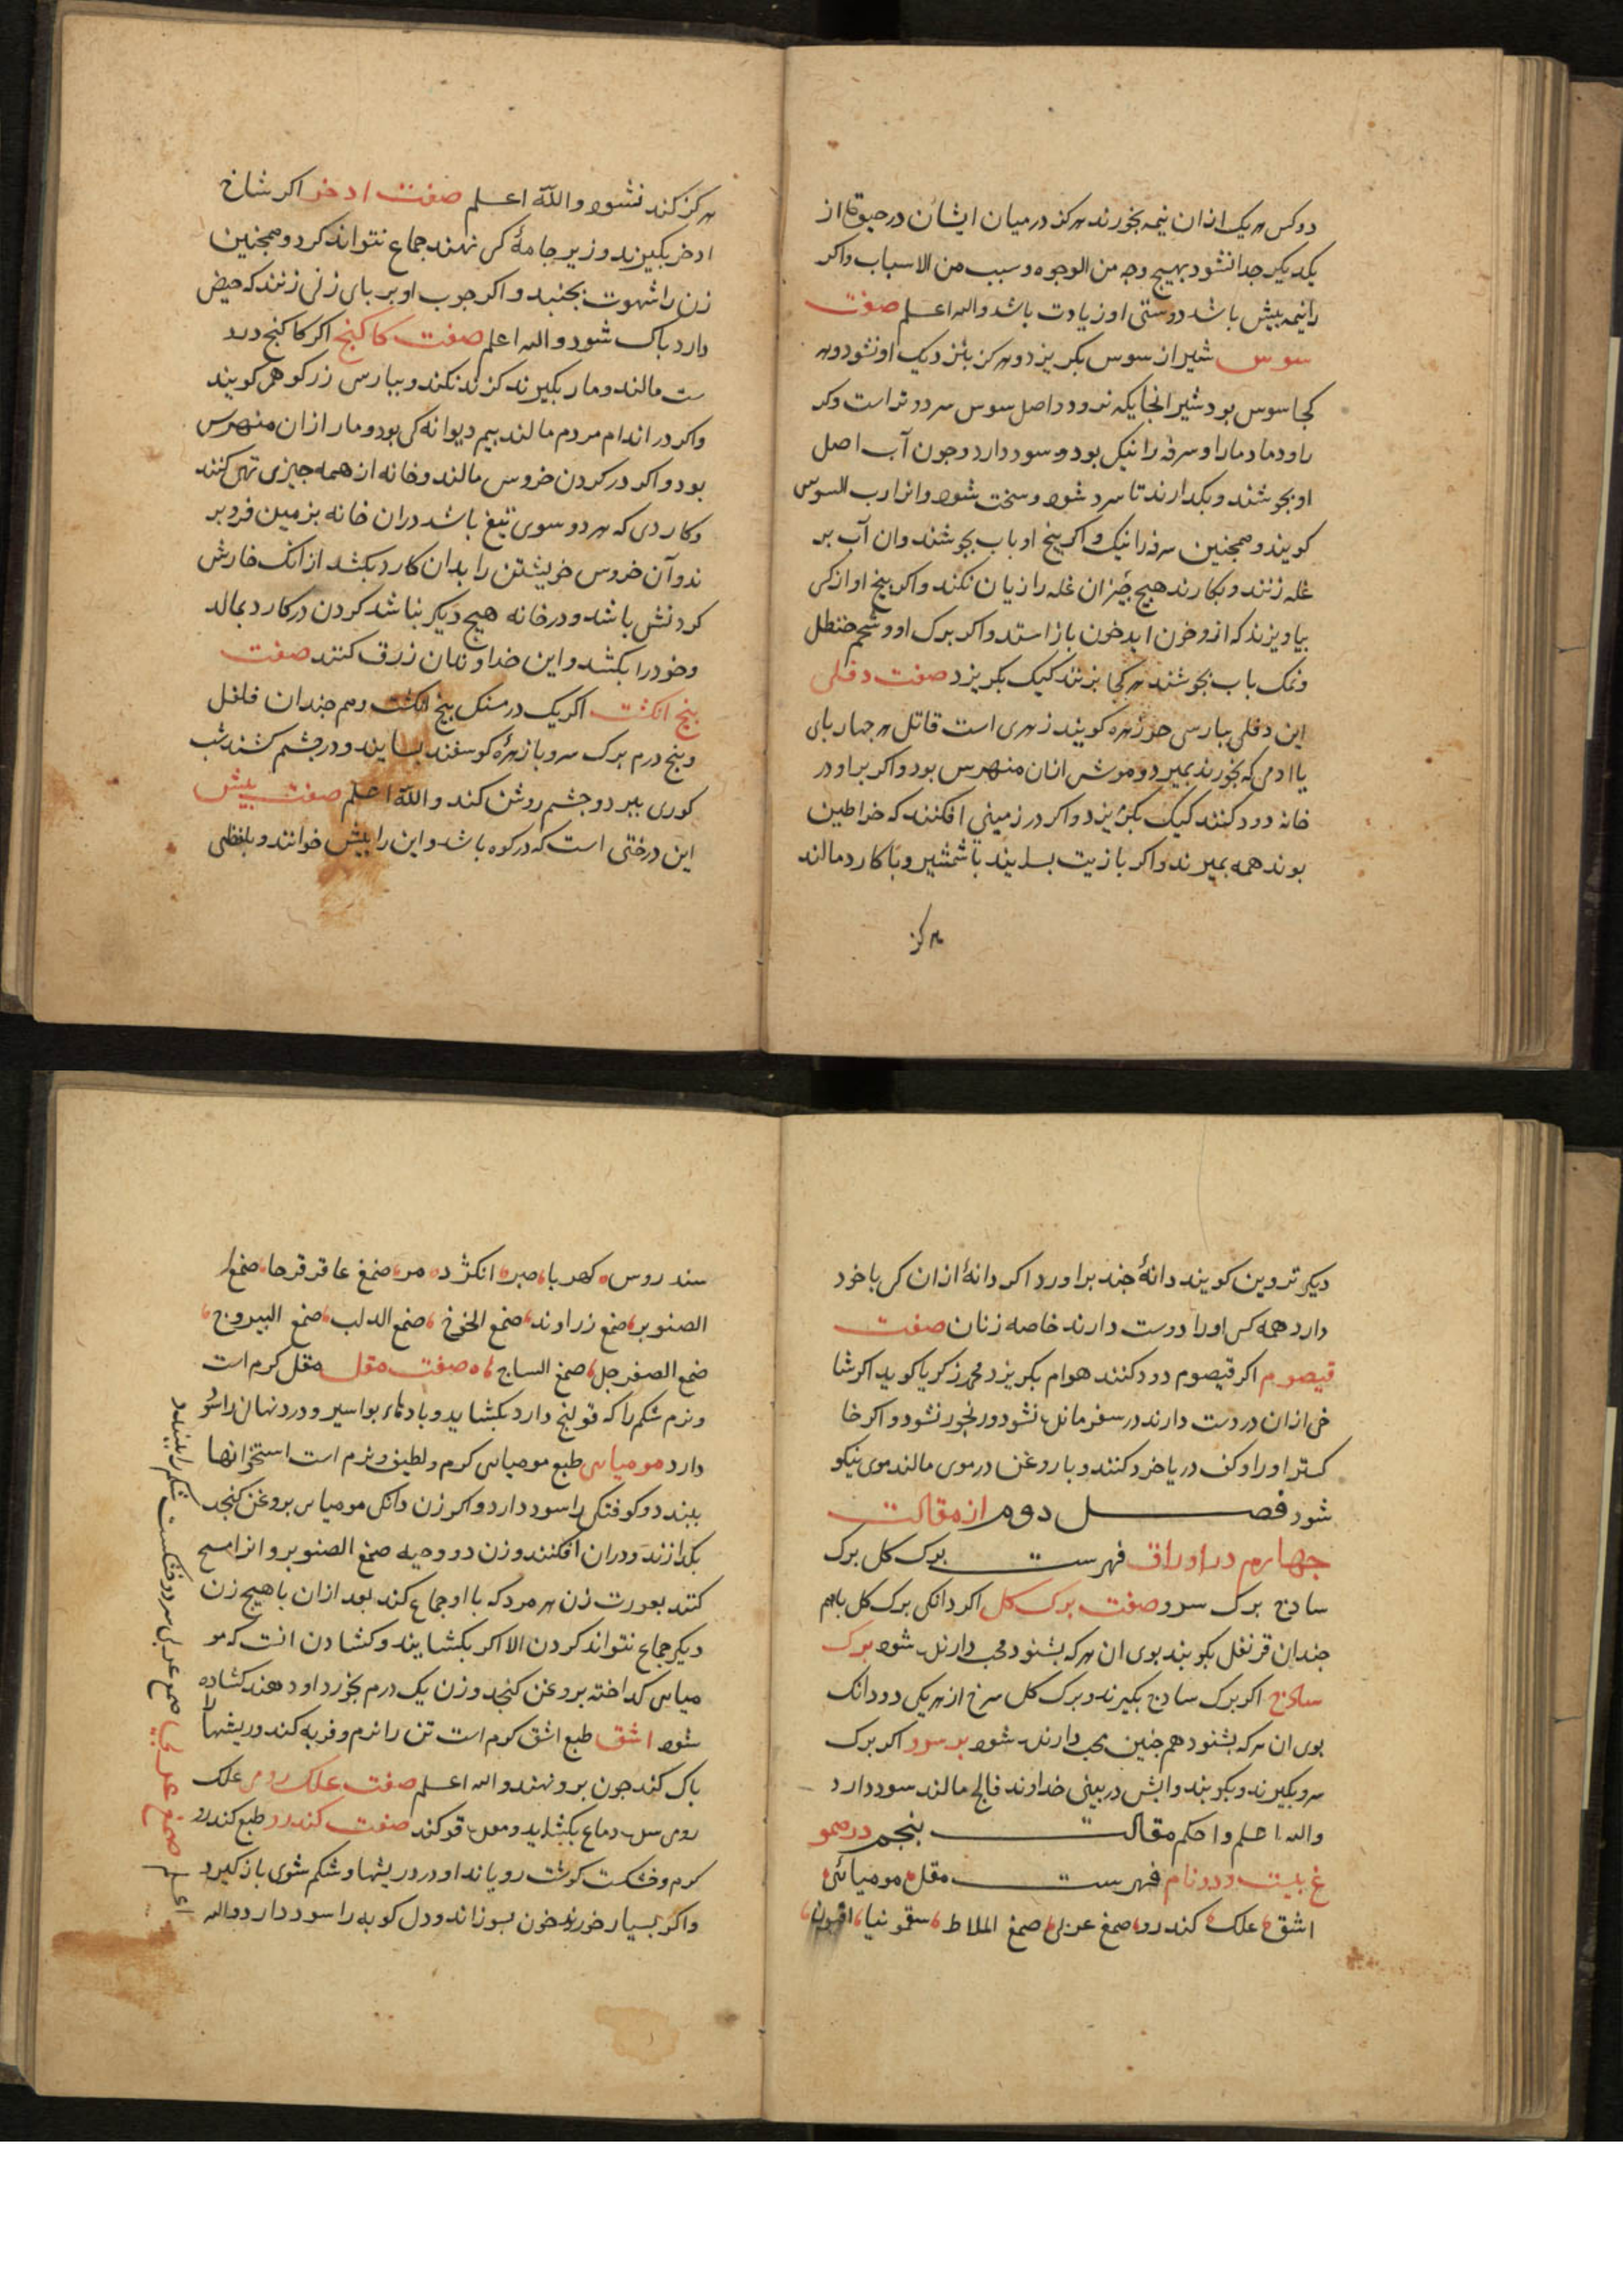 دوکس هر یک ازان نیمه بخورند هرکز درمیان ایشان در حیوة از
یکدیکر جدا نشود بهیچ وجه من الوجوه و سبب من الاسباب واکر
را نیمه بیش باشد دوستی او زیادت باشد والله اعلم صفت
سوس شیر از سوس بکریزد و هرکز بنزدیک او نشود و هر
کجا سوس بود شیر انجایکه نرود و اصل سوس سرد و تر است وکر
را و دمادما را و سرفه را نیک بود و سود دارد و جون آب اصل
او بجوشند و بکدارند تا سرد شود و سخت شود وانرا رب السوس
کویند و همجنین سرفه را نیک و اکر بیخ او باب بجوشند وان آب بر
غله زنند و بکارند هیچ جیز ان غله را زیان نکند و اکر بیخ او از کسی
بیاویزند که ازو خون اید خون باز استد و اکر برک او و شحم حنظل
و نمک باب بجوشند هر کجا بزنند کیک بکریزد صفت دفلی
این دفلی ببارسی خرزهره کویند زهری است قاتل هر جهار بای
یا ادمی که بخورند بمیرد و موش ازان منهزم بود و اکر براو در
خانه دود کنند کیک بکریزد واکر در زمینی افکنند که خراطین
بوند همه بمیرند و اکر با زیت بسایند با شمشیر و با کارد مالند
هرکز
هرکز کند نشود والله اعلم صفت ادخر اکر شاخ
ادخر بکیرند و زیر جامهٔ کسی نهند جماع نتواند کرد و همجنین
زن را شهوت بجنبد و اکر جوب او بر بای زنی زنند که حیض
دارد باک شود و الله اعلم صفت کاکنج اکر کاکنج در د
ست مالند و مار بکیرند کزند نکند و ببارسی زرکوهر کویند
واکر در اندام مردم مالند بیم دیوانه کی بود و مار ازان منهزم
بود و اکر در کردن خروس مالند و خانه از همه جیزی تهی کنند
و کاردی که هر دو سوی تیغ باشد دران خانه بزمین فرو بر
ند و آن خروس خویشتن را بدان کارد بکشد از انک خارش
کردنش باشد و در خانه هیچ دیکر نباشد کردن در کارد بمالد
و خود را بکشد و این خداوندان زرق کنند صفت
بنج انکشت اکر یک درمسنک بنج انکشت و هم جندان فلفل
و بنج درم برک سرو با زهرهٔ کوسفند بسایند و در جشم کشند شب
کوری ببرد و جشم روشن کند و الله اعلم صفت بیش
این درختی است که در کوه باشد و این را بیش خوانند و بلفظی
دیکر تروین کویند دانهٔ جند براورد اکر دانهٔ ازان کسی با خود
دارد همه کس اورا دوست دارند خاصه زنان صفت
قیصوم اکر قیصوم دود کنند هوام بکریزد محمد زکریا کوید اکر شا
خی ازان در دست دارند در سفر مانده نشود و رنجور نشود و اکر خا
کستر اورا و کف دریا خرد کنند و با روغن در موی مالند موی نیکو
شود فصل دوم از مقالت
جهارم در اوراق فهرست برک کل برک
سادج برک سرو صفت برک کل اکر دانکی برک کل باهم
جندان قرنفل بکوبند بوی ان هر که بشنود محب دارنده شود برک
سادج اکر برک سادج بکیرند و برک کل سرخ از هر یکی دودانک
بوی ان هرکه بشنود هم جنین محب دارنده شود برسرو اکر برک
سرو بکیرند و بکوبند و ابش در بینی خداوند فالج مالند سود دارد
والله اعلم واحکم مقالت بنجم در صمو
غ بیست و دو نام فهرست مقل مومیائی
اشق علک کندرو صمغ عربی صمغ الملاط سقمونیا افیون
سندروس کهربا صبر انکژد مر صمغ عاقرقرحا صمغ
الصنوبر صمغ زراوند صمغ الخوخ صمغ الدلب صمغ البیروج
ضمغ الصفرجل صمغ الساج صفت مقل مقل کرم است
و نرم شکم را که قولنج دارد بکشاید و بادهاء بواسیر و درد نهان را سو
دارد مومیای طبع مومیای کرم و لطیف و نرم است استخوانها
ببندد و کوفتکی را سود دارد واکر زن دانکی مومیای بروغن کنجد
بکدازند و دران افکنند و زن دو وجبه صمغ الصنوبر و انرا مسح
کنند بعورت زن هر مرد که با او جماع کند بود ازان با هیچ زن
دیکر جماع نتواند کردن الا اکر بکشایند و کشادن انست که مو
میای کداخته بروغن کنجد و زن یک درم بخورد او دهند کشاده
شود اشق طبع اشق کرم است تن را نرم و فربه کند و ریشها را
باک کند جون برو نهند والله اعلم صفت علک رومی علک
رومی سده دماغ بکشاید و معده قو کند صفت کندرو طبع کندرو
کرم و خشکست کوشت رویاند او در ریشها و شکم شوی باز کیرد
واکر بسیار خورند خون بسوزاند و دل کوبه را سود دارد و الله
اعلم صمغ عربی صمغ عربی سرد و خشکست شکم را ببندد